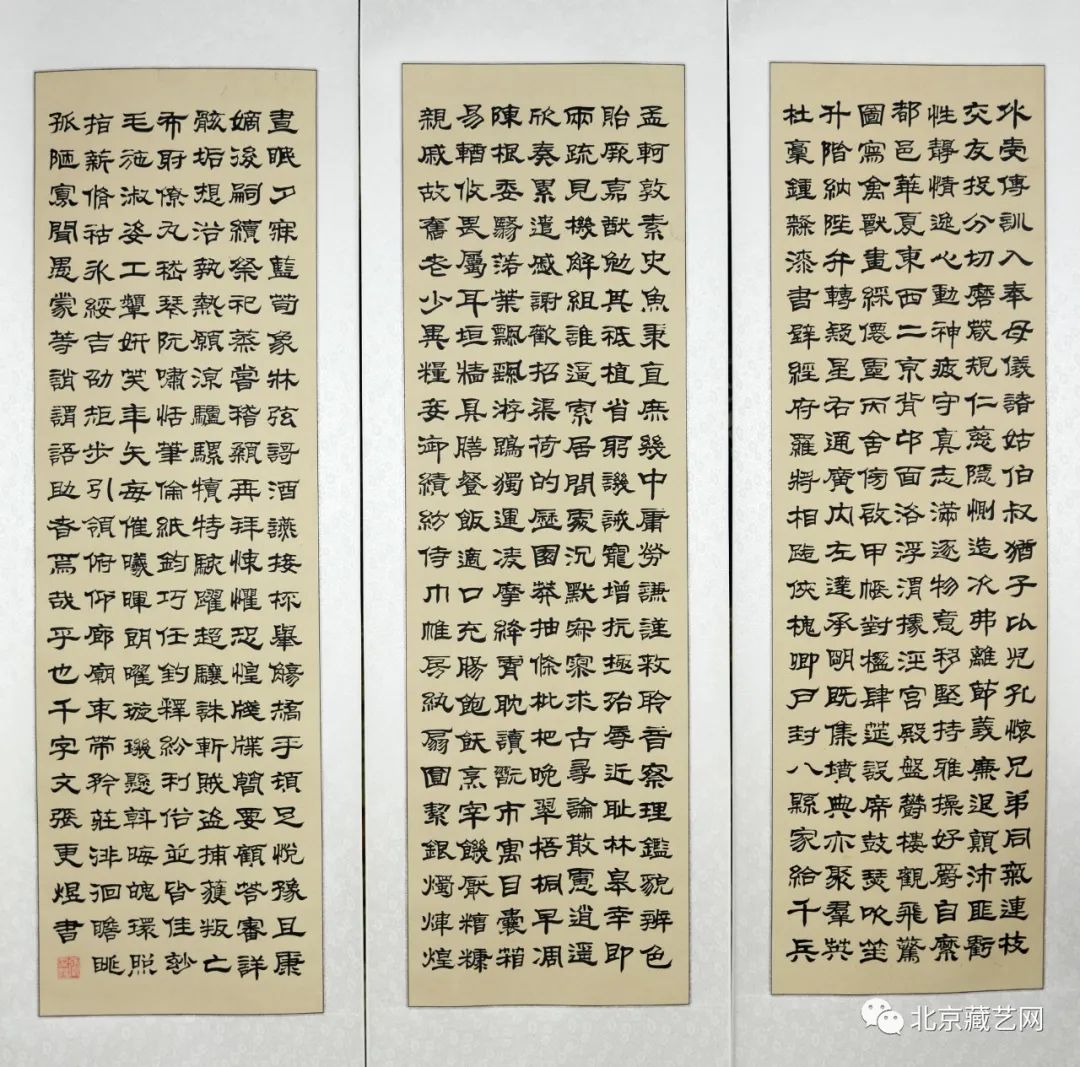 外受傳訓入奉母儀諸姑伯叔猶子比兒孔懷兄弟同氣連枝
交友投分切磨箴規仁慈隱惻造次弗離節義廉退顛沛匪虧
性靜情逸心動神疲守真志滿逐物意移堅持雅操好爵自縻
都邑華夏東西二京背邙面洛浮渭據涇宮殿盤鬱樓觀飛驚
圖寫禽獸畫綵僊靈丙舍傍啟甲帳對楹肆筵設席鼓瑟吹笙
升階納陛弁轉疑星右通廣內左達承明既集墳典亦聚羣英
杜稾鍾隸漆書壁經府羅將相路俠槐卿戶封八縣家給千兵
孟軻敦素史魚秉直庶幾中庸勞謙謹敕聆音察理鑑貌辨色
貽厥嘉猷勉其祗植省躬譏誡寵增抗極殆辱近恥林皋幸即
兩疏見機解組誰逼索居閒處沉默寂寥求古尋論散慮逍遙
欣奏累遣慼謝歡招渠荷的歷園莽抽條枇杷晚翠梧桐早凋
陳根委翳落葉飄颻游鵾獨運凌摩絳霄耽讀翫市寓目囊箱
易輶攸畏屬耳垣牆具膳餐飯適口充腸飽飫烹宰饑厭糟糠
親戚故舊老少異糧妾御績紡侍巾帷房紈扇圓絜銀燭煒煌
晝眠夕寐藍筍象牀弦歌酒讌接杯舉觴矯手頓足悅豫且康
嫡後嗣續祭祀蒸嘗稽顙再拜悚懼恐惶牋牒簡要顧答審詳
骸垢想浴執熱願涼驢騾犢特駭躍超驤誅斬賊盜捕獲叛亡
布射僚丸嵇琴阮嘯恬筆倫紙鈞巧任釣釋紛利俗並皆佳妙
毛施淑姿工顰妍笑年矢每催曦暉朗曜璇璣懸斡晦魄環照
指薪脩祜永綏吉劭矩步引領俯仰廊廟束帶矜莊徘徊瞻眺
孤陋寡聞愚蒙等誚謂語助者焉哉乎也千字文張更煜書
北京藏艺网